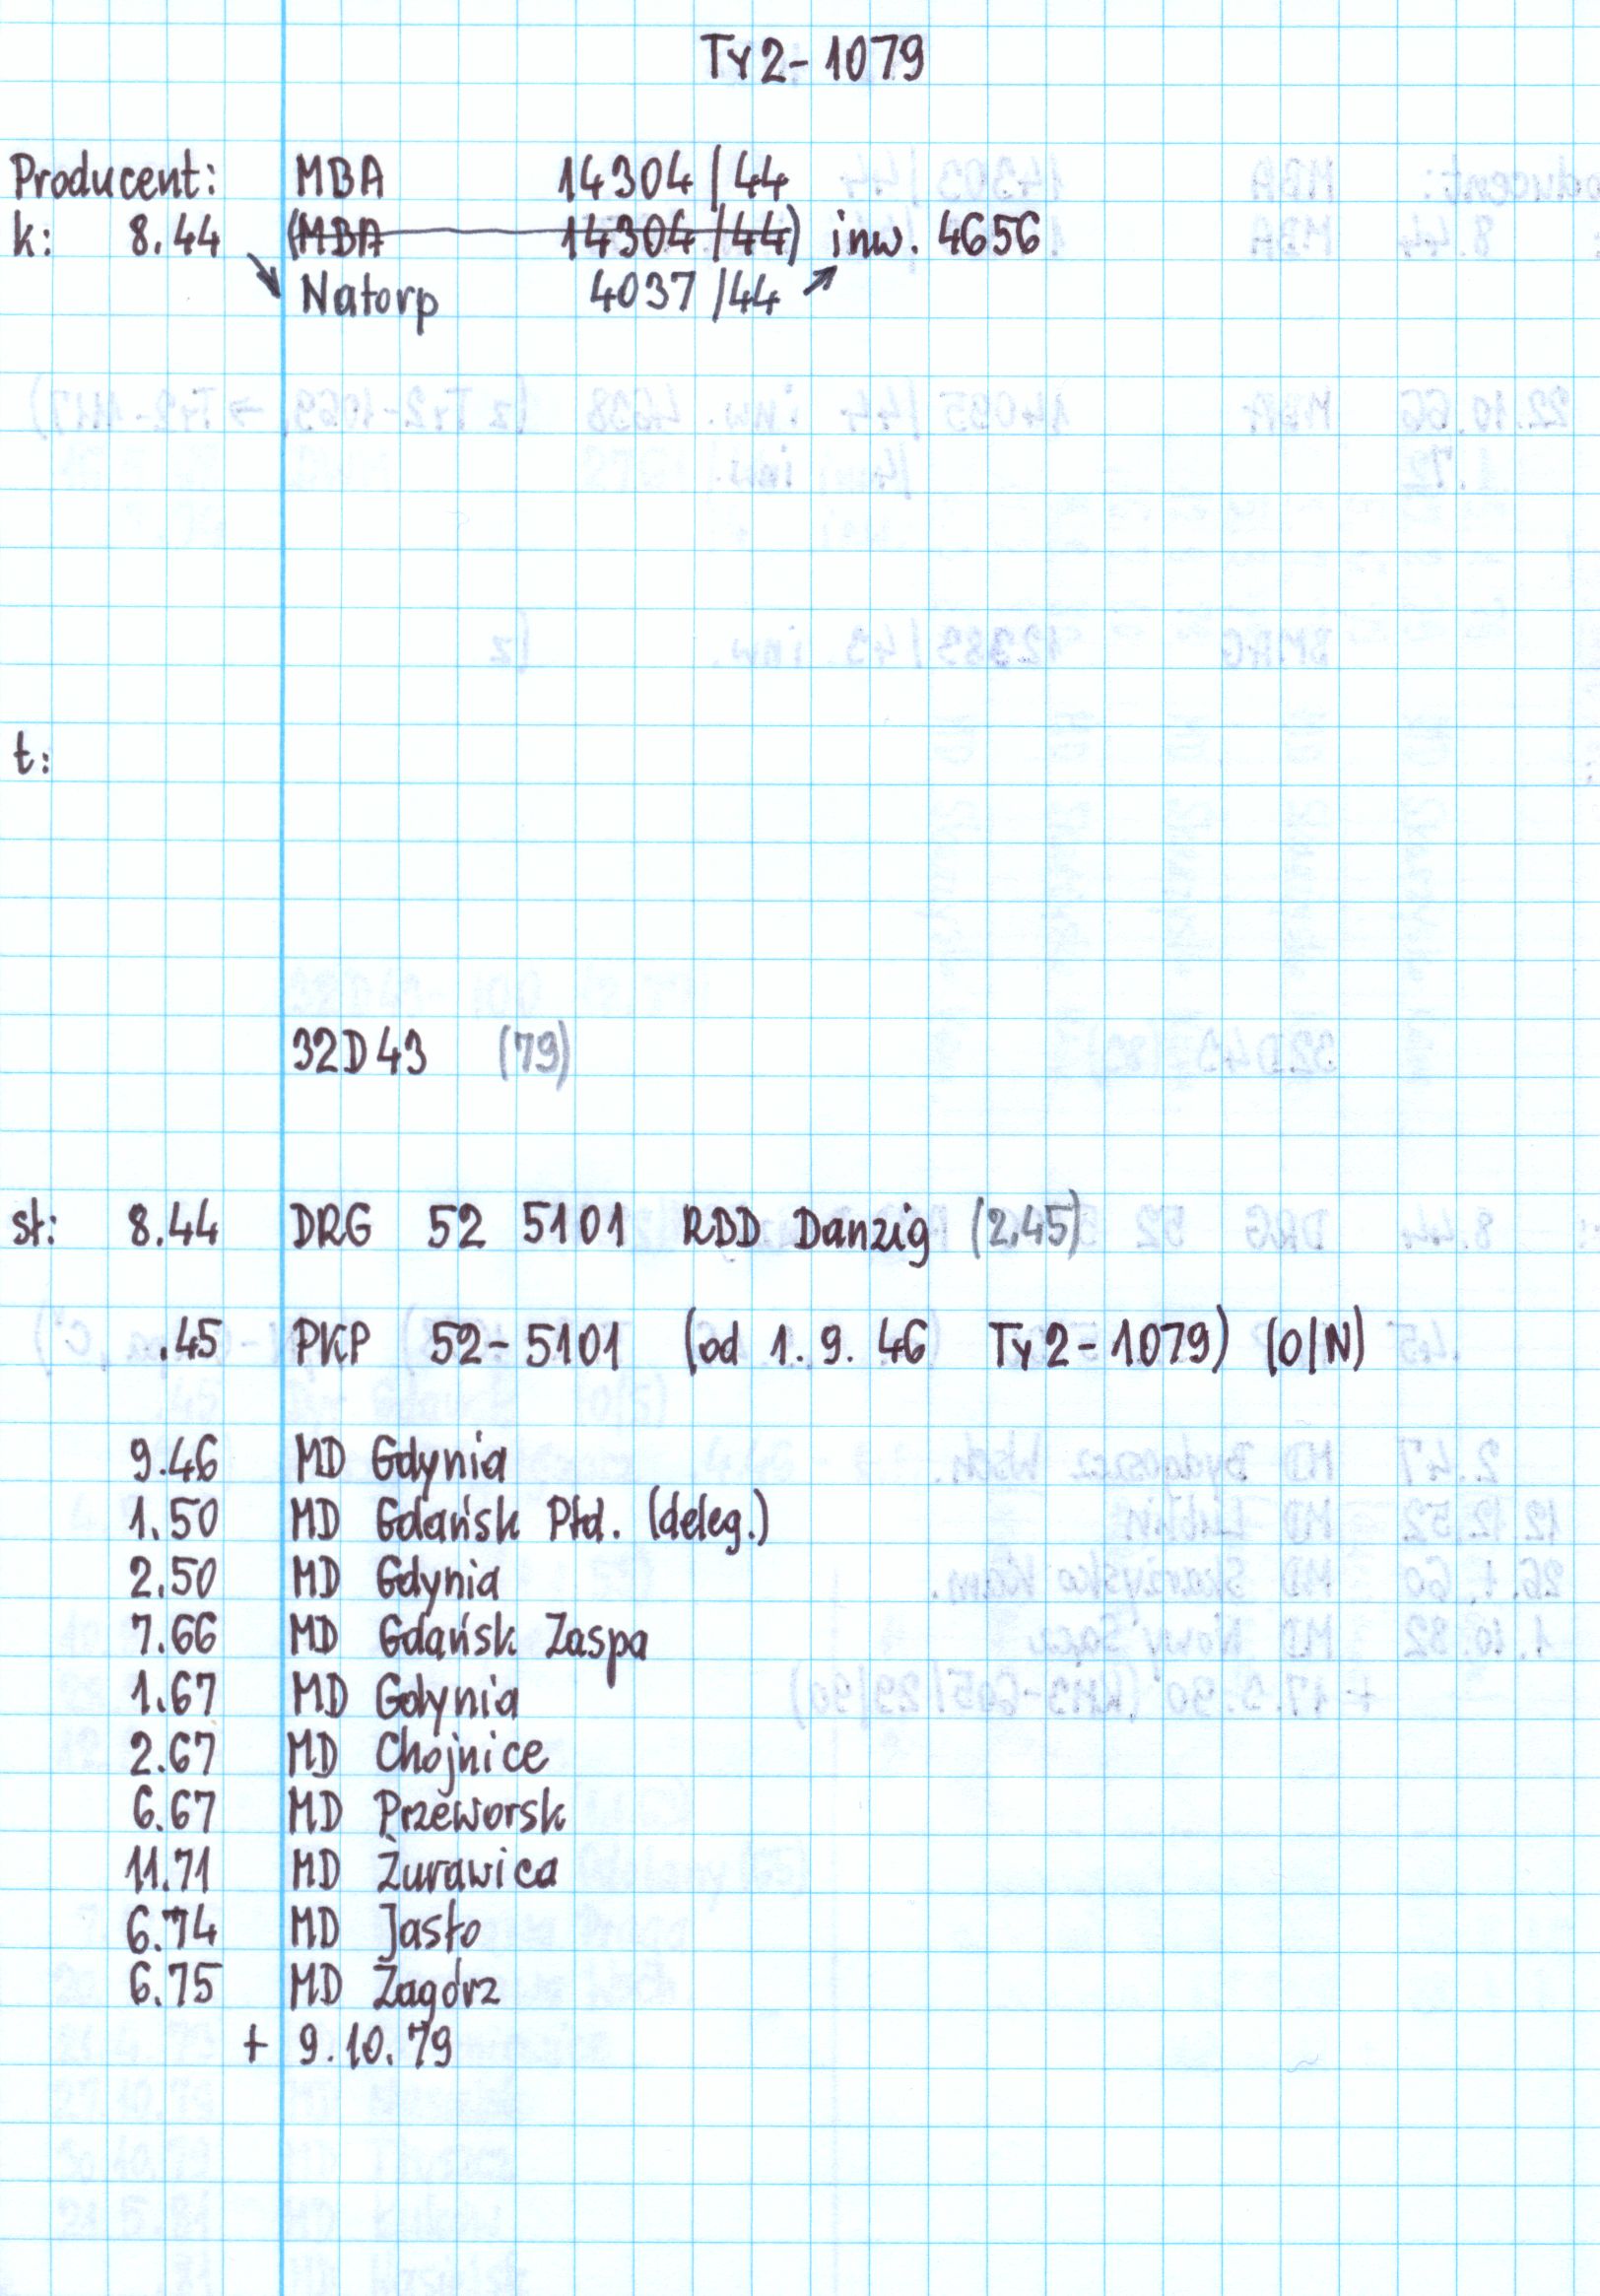 Ty2-1079
Producent: MBA 14304/44
k: 8.44 (MBA 14304/44) inw. 4656
Natorp 4037/44
t:
32D43 (79)
st: 8.44 DRG 52 5101 RBD Danzig (2.45)
.45 PKP 52-5101 (od 1.9.46 Ty2-1079) (O/N)
9.46 MD Gdynia
1.50 MD Gdańsk Płd. (deleg.)
2.50 MD Gdynia
7.66 MD Gdańsk Zaspa
1.67 MD Gdynia
2.67 MD Chojnice
6.67 MD Przeworsk
11.71 MD Żurawica
6.74 MD Jasło
6.75 MD Zagórz
+ 9.10.79